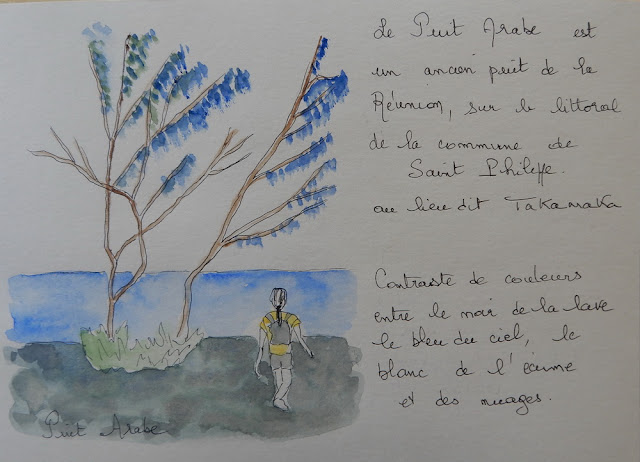 Le Puit Arabe est
un ancien puit de la
Réunion, sur le littoral
de la commune de
Saint Philippe.
au lieu dit Takamaka
Contraste de couleurs
entre le noir de la lave
le bleu du ciel, le
blanc de l'écume
et des nuages.
Puit Arabe